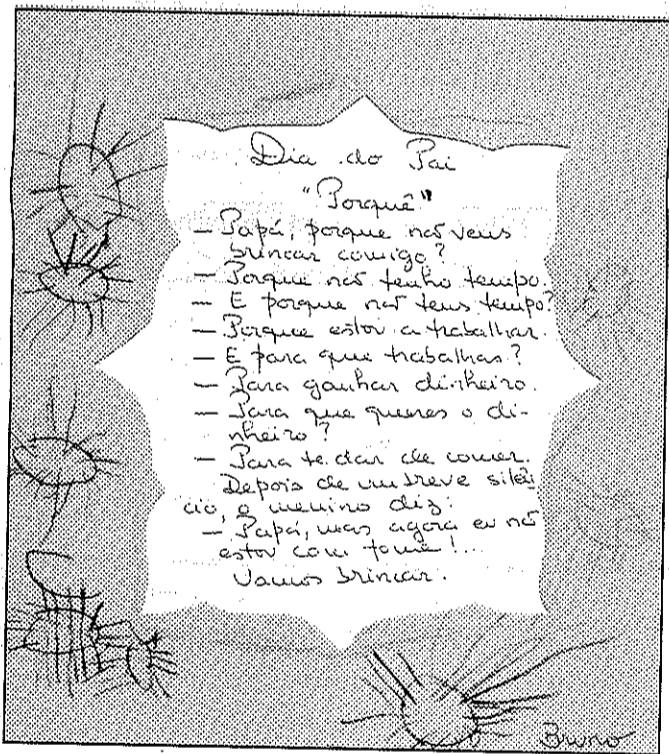 Dia do Pai
"Porquê"
— Papá, porque não vens
brincar comigo?
— Porque não tenho tempo.
— E porque não tens tempo?
— Porque estou a trabalhar.
— E para que trabalhas?
— Para ganhar dinheiro.
— Para que queres o di-
nheiro?
— Para te dar de comer.
Depois de um breve silên
cio, o menino diz:
— Papá, mas agora eu não
estou com fome!...
Vamos brincar.
Bruno